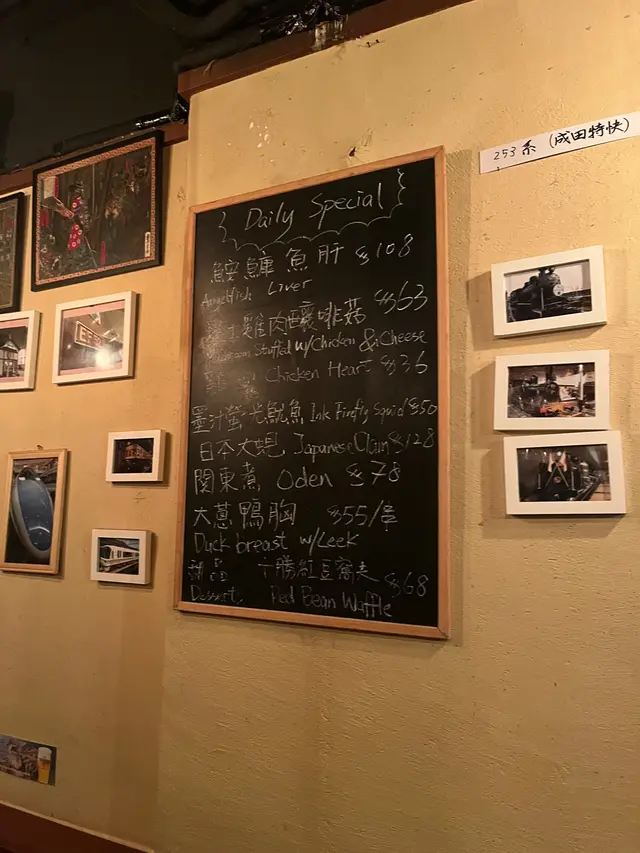 Daily Special
鮟鱇魚肝 $108
Angelfish Liver
芝士雞肉釀啡菇 $63
Mushroom Stuffed w/Chicken & Cheese
Chicken Heart $36
墨汁螢光魷魚 Ink Firefly Squid $50
日本大蜆 Japanese Clam $128
関東煮 Oden $78
大蔥鴨胸 $55/串
Duck breast w/Leek
甜品 十勝紅豆窩夫 $68
Dessert Red Bean Waffle
253系 (成田特快)